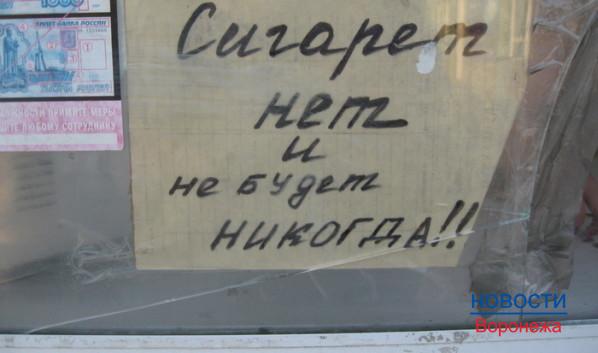 1000
БИЛЕТ БАНКА РОССИИ
Сигарет
нет
и
не будет
НИКОГДА!!
ПРИМИТЕ МЕРЫ
ЛЮБОМУ СОТРУДНИКУ
НОВОСТИ
Воронежа